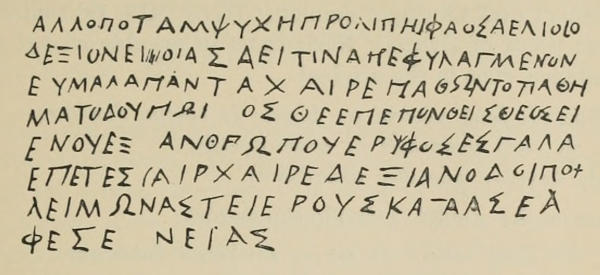 ΑΛΛΟΠΟΤΑΜΨΥΧΗΠΡΟΛΙΠΗΙΦΑΟΣΑΕΛΙΟΙΟ
ΔΕΞΙΟΝΕΙΙΙΟΙΑΣ ΔΕΙΤΙΝΑΠΕΦΥΛΑΓΜΕΝΟΝ
ΕΥΜΑΛΑΠΑΝΤΑΧΑΙΡΕΠΑΘΩΝΤΟΠΑΘΗ
ΜΑΤΟΔΟΥΠΩΙ ΟΣΘΕΕΠΕΠΟΝΘΕΙΣΘΕΟΣΕΙ
ΕΝΟΥΕΞ ΑΝΘΡΩΠΟΥΕΡΥΦΟΣΕΣΓΑΛΑ
ΕΠΕΤΕΣΙΑΙΡΧΑΙΡΕΔΕΞΙΑΝΟΔΟΙΠΟΡ
ΛΕΙΜΩΝΑΣΤΕΙΕΡΟΥΣΚΑΤΑΑΣΕΑ
ΦΕΣΕ ΝΕΙΑΣ